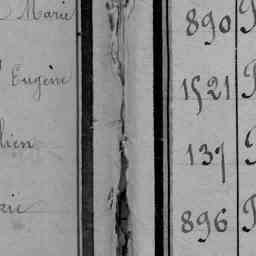 Marie 890
Eugène 1521
lien 137
rie 896